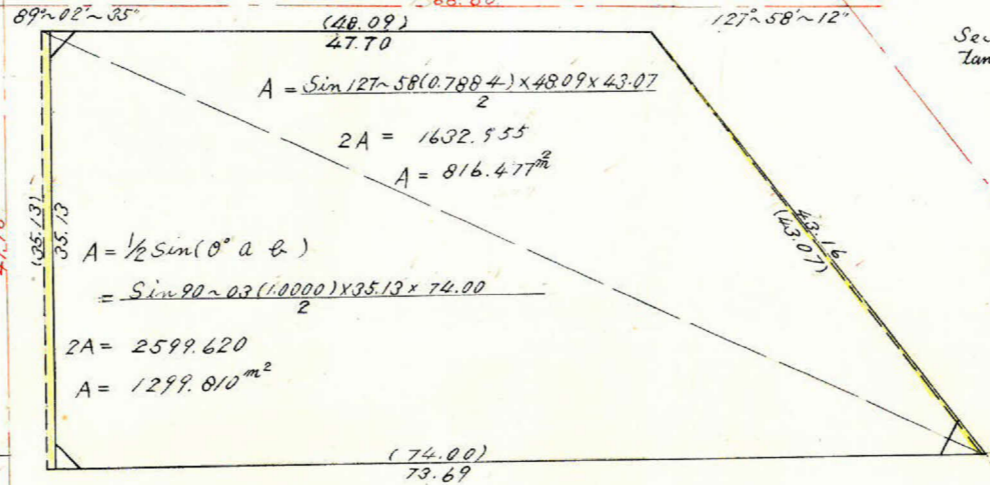 89°~02'~35"
127°~58'~12"
(48.09)
47.70
tan
A = Sin 127~58(0.7884)×48.09×43.07
2
2A = 1632.955
A = 816.477m²
(35.13)
35.13
43.16
(43.07)
A = 1/2 Sin(θ° a b)
= Sin 90~03(1.0000)×35.13×74.00
2
2A = 2599.620
A = 1299.810m²
(74.00)
73.69